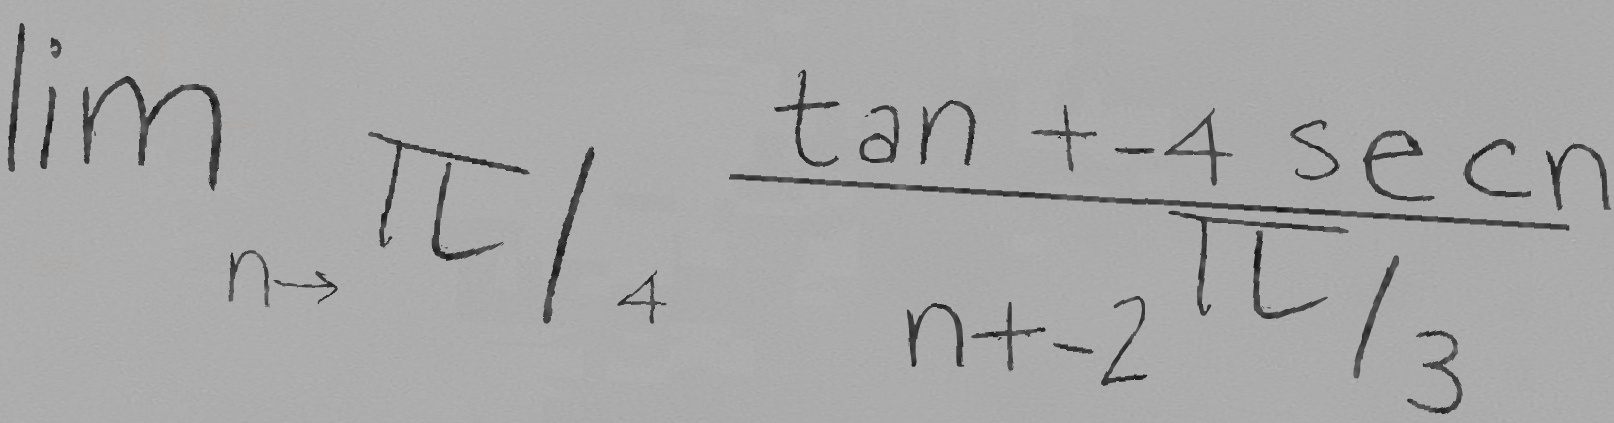 lim n→ π/4 (tan + -4 sec n) / (n + -2π/3)